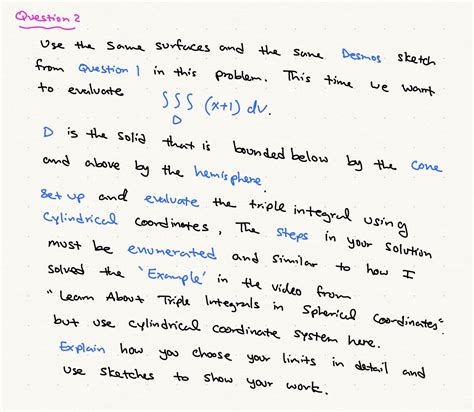 Question 2
Use the same surfaces and the same Desmos sketch
from Question 1 in this problem. This time we want
to evaluate ∫∫∫ (x+1) dv.
D
D is the solid that is bounded below by the cone
and above by the hemisphere.
Set up and evaluate the triple integral using
Cylindrical coordinates, The steps in your solution
must be enumerated and similar to how I
solved the 'Example' in the video from
"Learn About Triple Integrals in Spherical Coordinates".
but use cylindrical coordinate system here.
Explain how you choose your limits in detail and
use sketches to show your work.